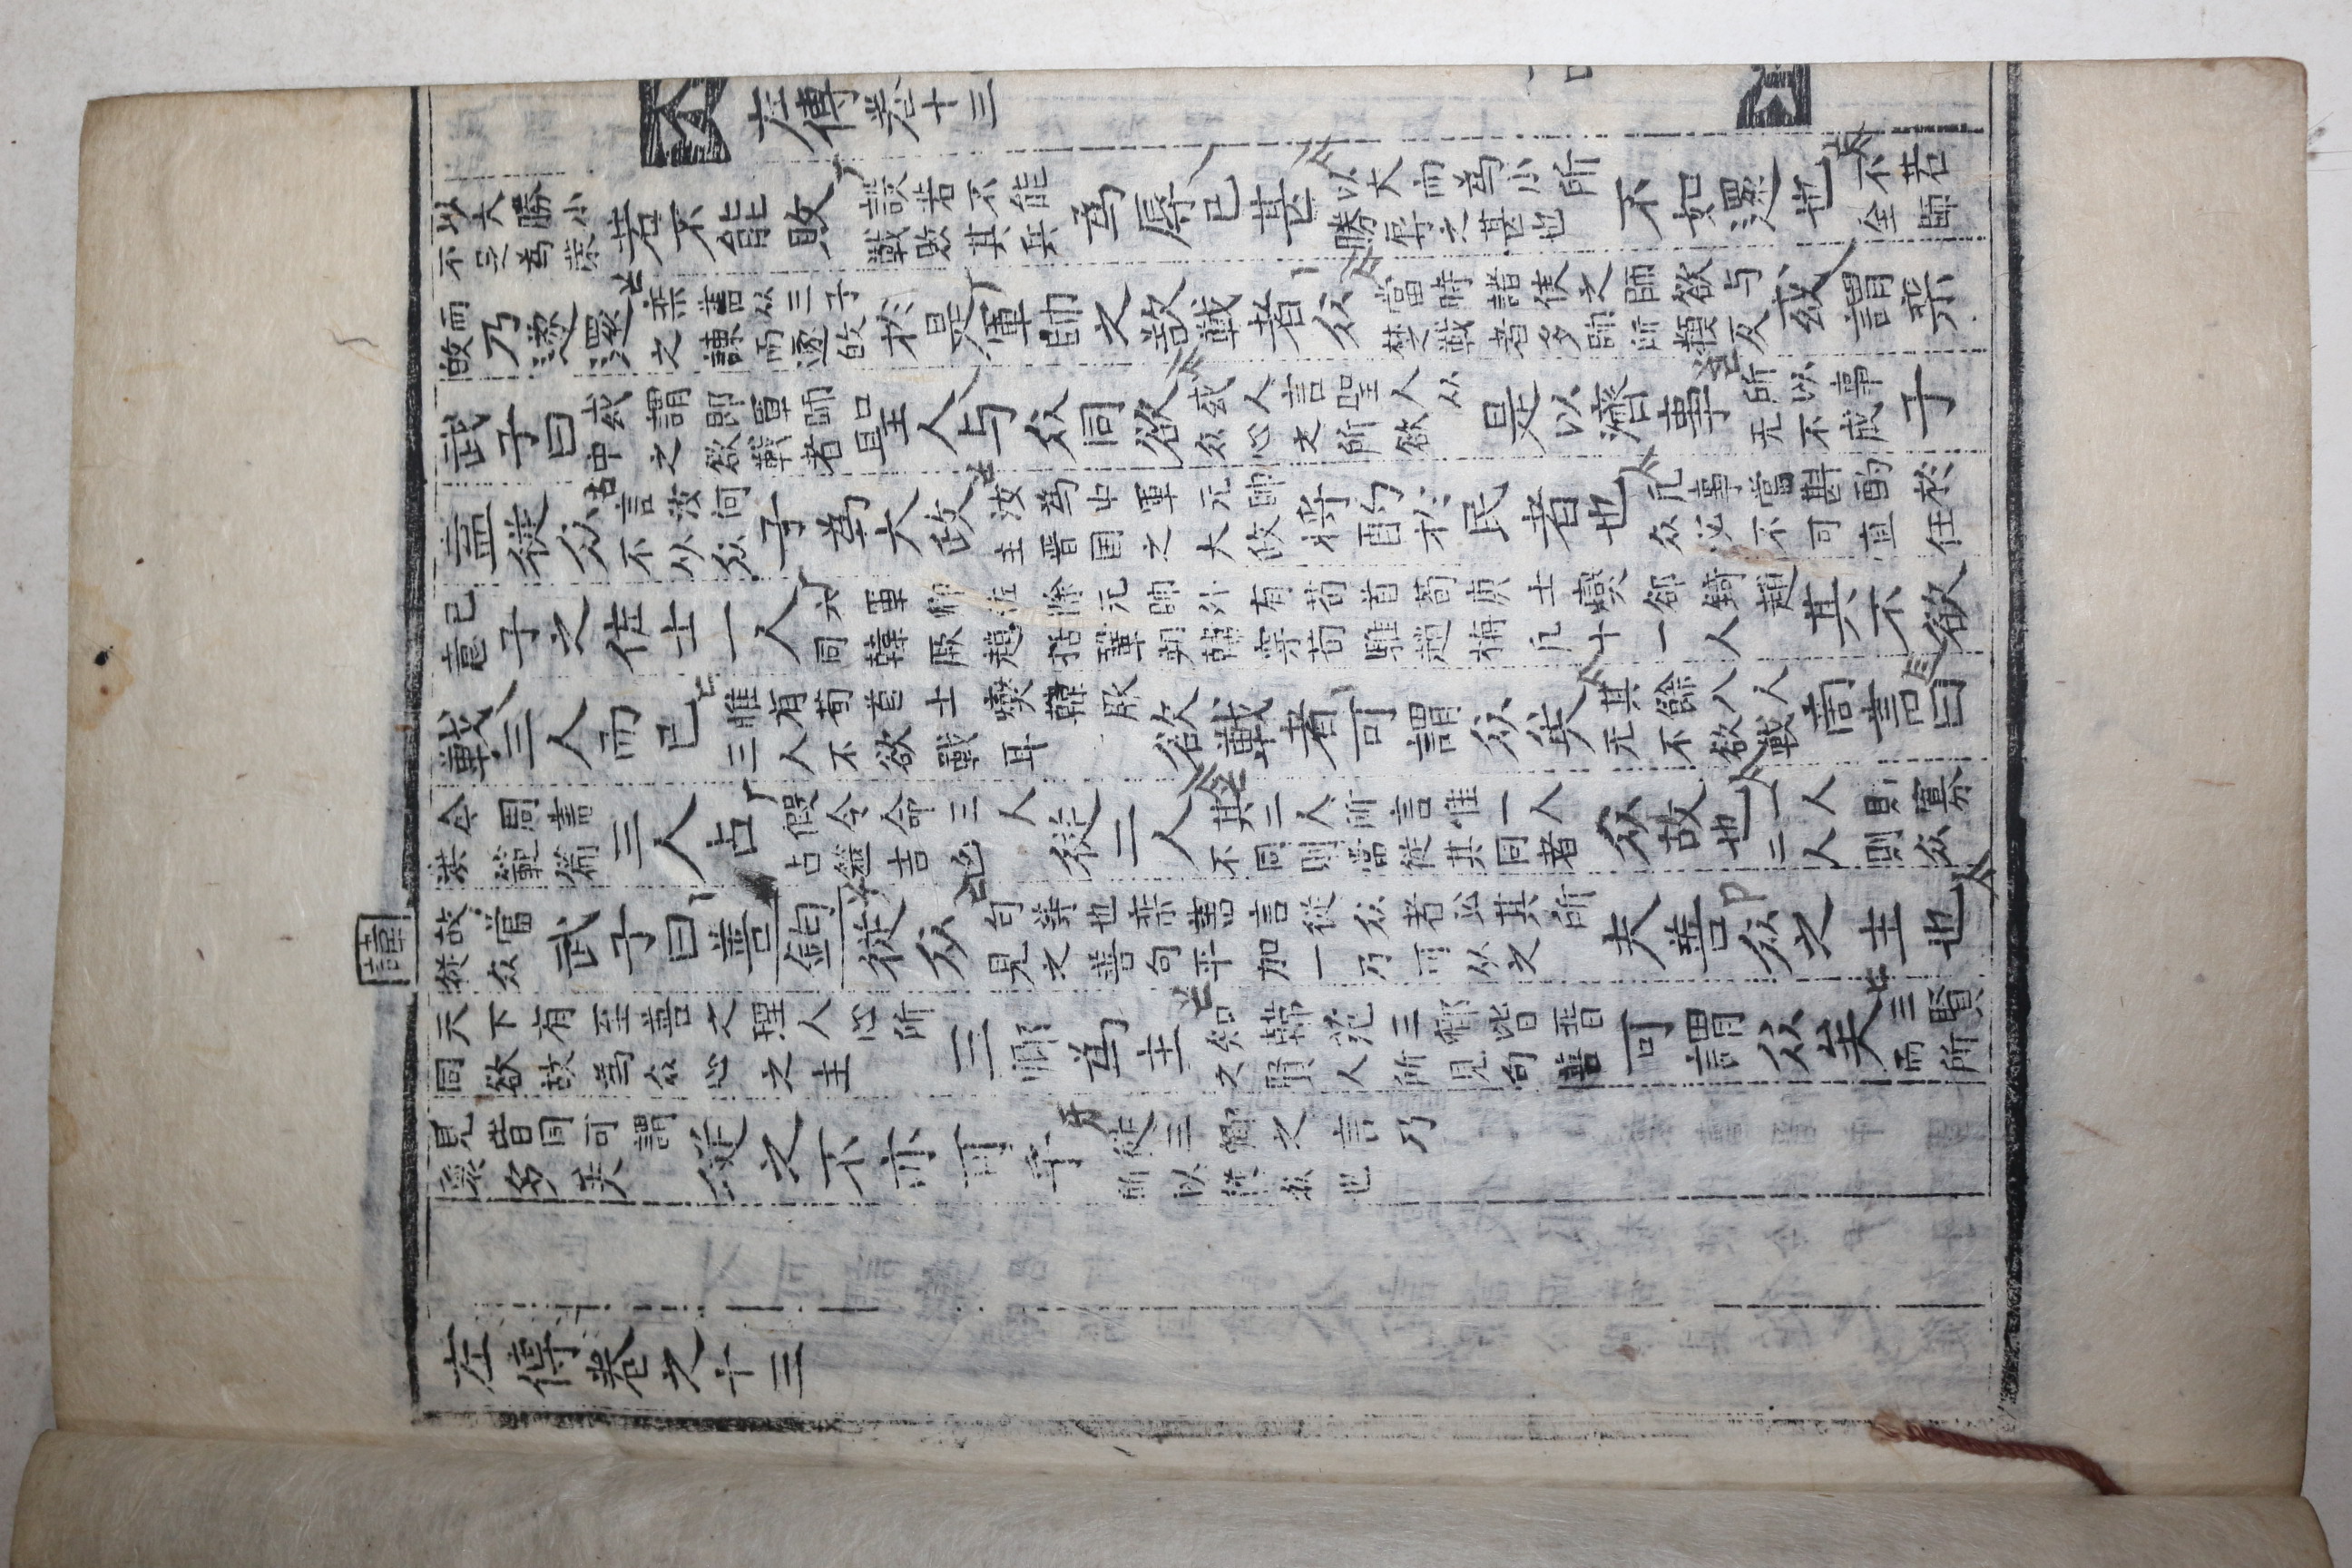 左傳卷十三
以大勝小不足為荣若不能敗設若不能戰敗其兵為辱已甚以大而為小所勝辱之甚也不如還也不若全師
而故乃遂還栾書从三子之諫而遂故於是軍帥之欲戰者众當時諸侯之師欲与楚戰者多師所類反或謂栾
武子曰或謂即軍師中之欲戰者聖人与众同欲或人言聖人从众心之所欲是以濟事所以事无不成子
盍從众言汝何不从众子為大政汝為中軍元帥主晋国之大政將酌於民者也凡事當斟酌於众必不可直任
已意子之佐士一人六軍卿佐除元帥外有荀首荀庚士燮郤錡趙同韓厥趙括鞏朔韓穿荀騅趙旃凡十一人其不欲
戰三人而已惟有荀首士燮韓厥三人不欲戰耳欲戰者可謂众矣其餘八人无不欲戰商書曰
今周書洪範篇三人占假令命三人占筮吉凶從二人其二人所言惟一人不同則當從其同者众故也一人則寡二人則众
諱
故當從众武子曰善鈞從众句等也栾書言從众者必其所見之善句平加一乃可从之夫善众之主也
天下有至善之理人心所同欲故為众心之主三卿為主知韓范三卿皆晋之賢人所見句善可謂众矣三賢而所
見皆同可謂衆多矣從之不亦可乎從三卿之言乃所以從众也
左傳卷之十三